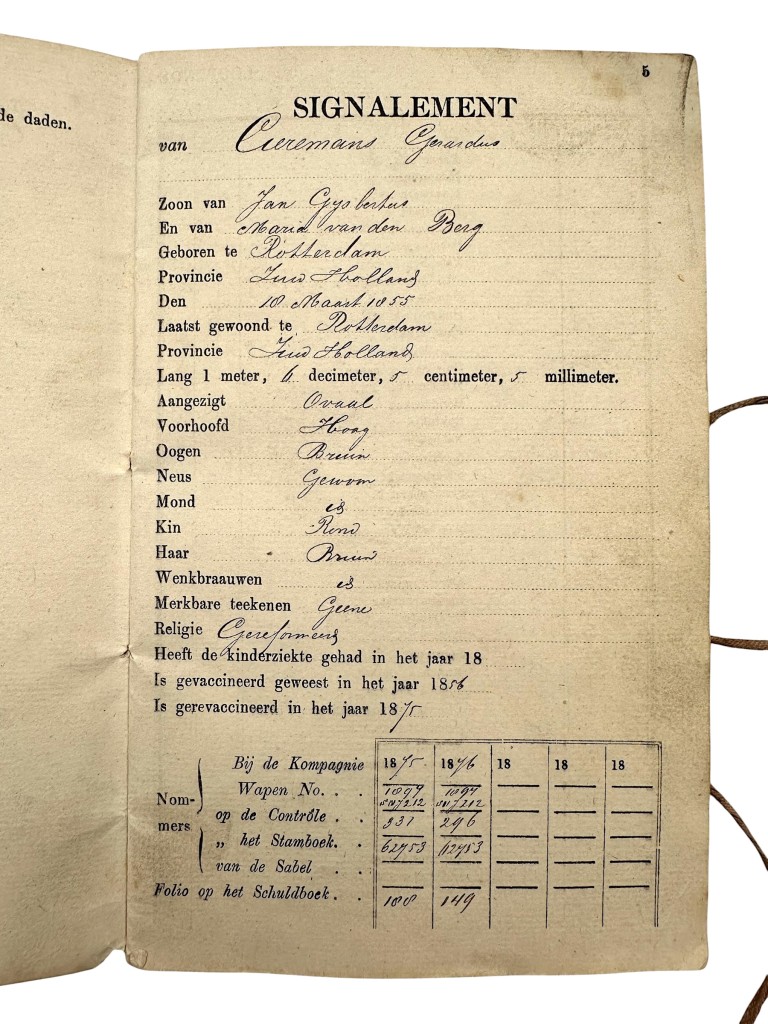 de daden.
5
SIGNALEMENT
van Curemans Gerardus
Zoon van Jan Gysbertus
En van Maria van den Berg
Geboren te Rotterdam
Provincie Zuid Holland
Den 18 Maart 1855
Laatst gewoond te Rotterdam
Provincie Zuid Holland
Lang 1 meter, 6 decimeter, 5 centimeter, 5 millimeter.
Aangezigt Ovaal
Voorhoofd Hoog
Oogen Bruin
Neus Gewoon
Mond
Kin Rond
Haar Bruin
Wenkbraauwen
Merkbare teekenen Geene
Religie Gereformeerd
Heeft de kinderziekte gehad in het jaar 18
Is gevaccineerd geweest in het jaar 1856
Is gerevaccineerd in het jaar 1875
Nommers
Bij de Kompagnie 1875 1876 18 18 18
Wapen No. . .
op de Contrôle . . 331 296
„ het Stamboek. . 62753 62753
van de Sabel . .
Folio op het Schuldboek. . 188 149